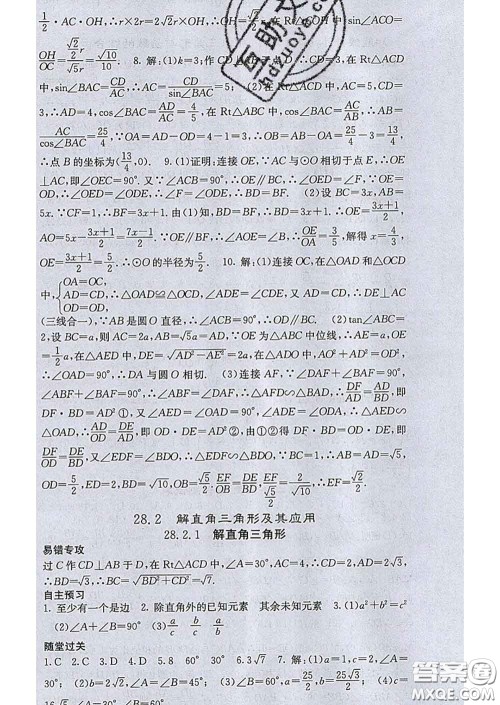 1/2·AC·OH,∴r×2r=2√2r×OH,∴OH=√2/√5 r.在Rt△ACO中,sin∠ACO=
OH/OC=(√2/√5 r)/r=√10/ 8.解:(1)k=3;作CD⊥ 于点D.∵ 中,sin∠BAC=CD/AC,∴sin∠BAC=3/5;(2)在Rt△ACD中,CD=
3,∴AD=4,cos∠BAC=AD/AC=4/5,在Rt△ABC中,AB=
AC/cos∠BAC=25/4,∵OA=AD-OD=4-1=3,∴OB=AB-OA=25/4-3=13/4,
∴点B的坐标为(13/4,0). 9.(1)证明:连接OE,∵AC与⊙O相切于点E,∴OE
⊥AC,即∠OEC=90°.又∵∠BCA=90°,∴OE∥BC,∴∠OED=∠F,∵OE=
OD,∴∠ODE=∠OED,∴∠F=∠ODE,∴BD=BF. (2)设BC=3x,AB=
5x.∵CF=1,∴BF=3x+1.由(1)知,BD=BF,∴BD=3x+1.∴OE=(3x+1)/2,
AO=5x-(3x+1)/2=(7x-1)/2.∵OE∥BF,∴∠AOE=∠B,∴OE/OA=3/5,解得x=4/3,
∴OE=(3x+1)/2=5/2.∴⊙O的半径为5/2. 10.解:(1)连接OC,在△OAD和△OCD
中,{OA=OC,AD=CD,OD=OD,∴△OAD≌△OCD,∴∠ADO=∠CDO,又AD=CD,∴DE⊥AC
(三线合一),∵AB是圆O直径,∴∠ACB=90°,∴OD∥BC. (2)tan∠ABC=
2,设BC=a,则AC=2a,AB=√5a=AD,∵OE为△ABC中位线,∴OE=
1/2a,在△AED中,DE=√(AD²-AE²)=2a,在△OAD中,AO²+AD²=OD²,
∴∠OAD=90°,∴DA与圆O相切. (3)连接AF,∵∠AFD=∠BAD=90°,
∠ABF+∠BAF=90°,∴∠DAF=∠ABD,∴△AFD∽△BAD,∴DF/AD=AD/BD,即
DF·BD=AD²①,又∠AED=∠OAD=90°,∠ADE=∠ODA,∴△AED∽
△OAD,∴AD/OD=DE/AD,即OD·DE=AD²②,由①②得DF·BD=OD·DE,即
DF/OD=DE/BD,又∠EDF=∠BDO,∴△EDF∽△BDO,∵BC=1,∴AB=AD=√5,
OD=5/2,ED=2,BD=√10,OB=√5/2.EF/OB=DE/BD,即EF/(√5/2)=2/√10,∴EF=√2/2.
28.2 解直角三角形及其应用
28.2.1 解直角三角形
易错专攻
过C作CD⊥AB于D,在Rt△ACD中,∵∠A=30°,AC=4,∴CD=2,AD=2√3,
∴BD=√3.∴BC=√(BD²+CD²)=√7.
自主预习
1.至少有一个是边 2.除直角外的已知元素 其余未知元素 3.(1)a²+b²=c²
(2)∠A+∠B=90° (3)a/c b/c a/b
随堂过关
1.C 2.C 3.D 4.D 5.8 60° 30° 6.3√7 7.解:(1)c=4,∠A=
30°;(2)b=2,∠A=∠B=45°;(3)∠A=60°,a=25√3/2,b=25/2;(4)c=
16√3,∠A=30°,∠B=60°.
互助文
hdzuoye.com
答案圈
MXQE.COM